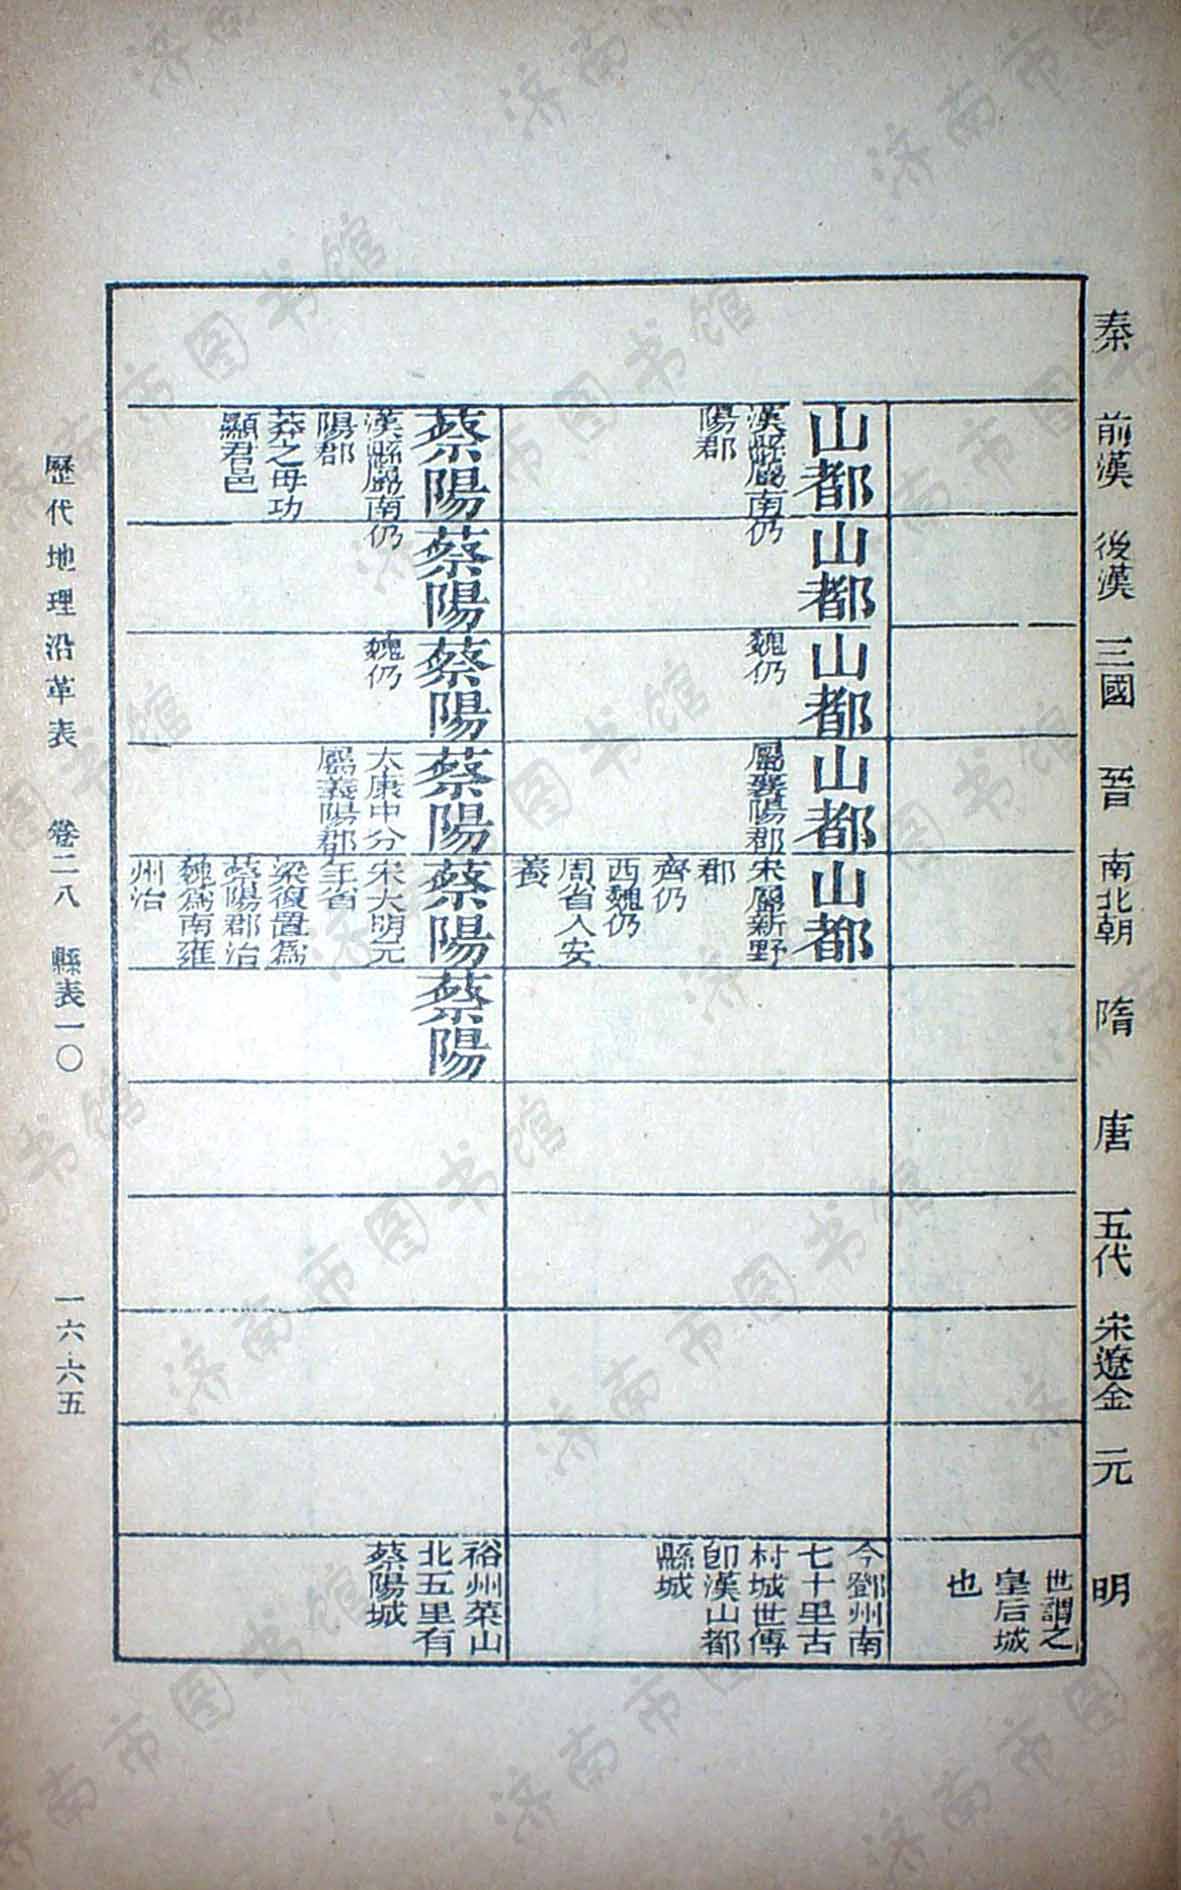 秦
前漢
後漢
三國
晉
南北朝
隋
唐
五代
宋遼金
元
明
世謂之
皇后城
也
山都
漢縣屬南仍
陽郡
山都
山都
魏仍
山都
屬襄陽郡
山都
宋屬新野
郡
齊仍
西魏仍
周省入安
養
今鄧州南
七十里古
村城世傳
卽漢山都
縣城
蔡陽
漢縣屬南仍
陽郡
莽之母功
顯君邑
蔡陽
蔡陽
魏仍
蔡陽
太康中分
屬義陽郡
蔡陽
宋大明元
年省
梁復置爲
蔡陽郡治
魏爲南雍
州治
蔡陽
裕州菜山
北五里有
蔡陽城
歷代地理沿革表 卷二八 縣表一〇 一六六五
济南市图书馆